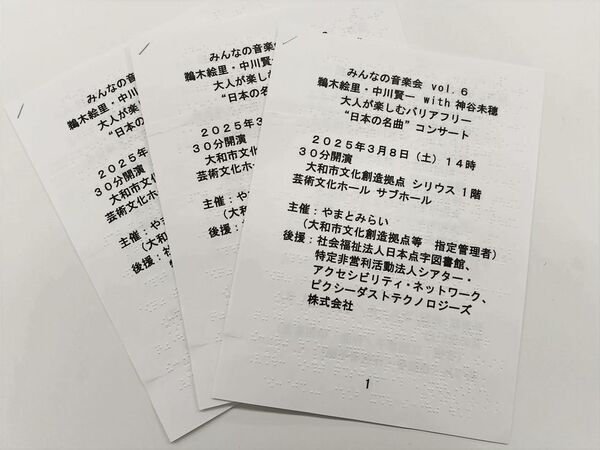 みんなの音楽会
鵜木絵里・中川
大人が楽し
“日本の
２０２５年
３０分開演
大和市文化
芸術文化ホ
主催：や
（大和
後援：社
みんなの音楽会
鵜木絵里・中川賢
大人が楽しむ
“日本の名
２０２５年３
３０分開演
大和市文化創
芸術文化ホール
主催：やまと
（大和市文
後援：社会福
特定非
アクセ
ピクシ
株式会
みんなの音楽会 vol.６
鵜木絵里・中川賢一 with 神谷未穂
大人が楽しむバリアフリー
“日本の名曲” コンサート
２０２５年３月８日（土）１４時
３０分開演
大和市文化創造拠点 シリウス １階
芸術文化ホール サブホール
主催：やまとみらい
（大和市文化創造拠点等 指定管理者）
後援：社会福祉法人日本点字図書館、
特定非営利活動法人シアター・
アクセシビリティ・ネットワーク、
ピクシーダストテクノロジーズ
株式会社
1